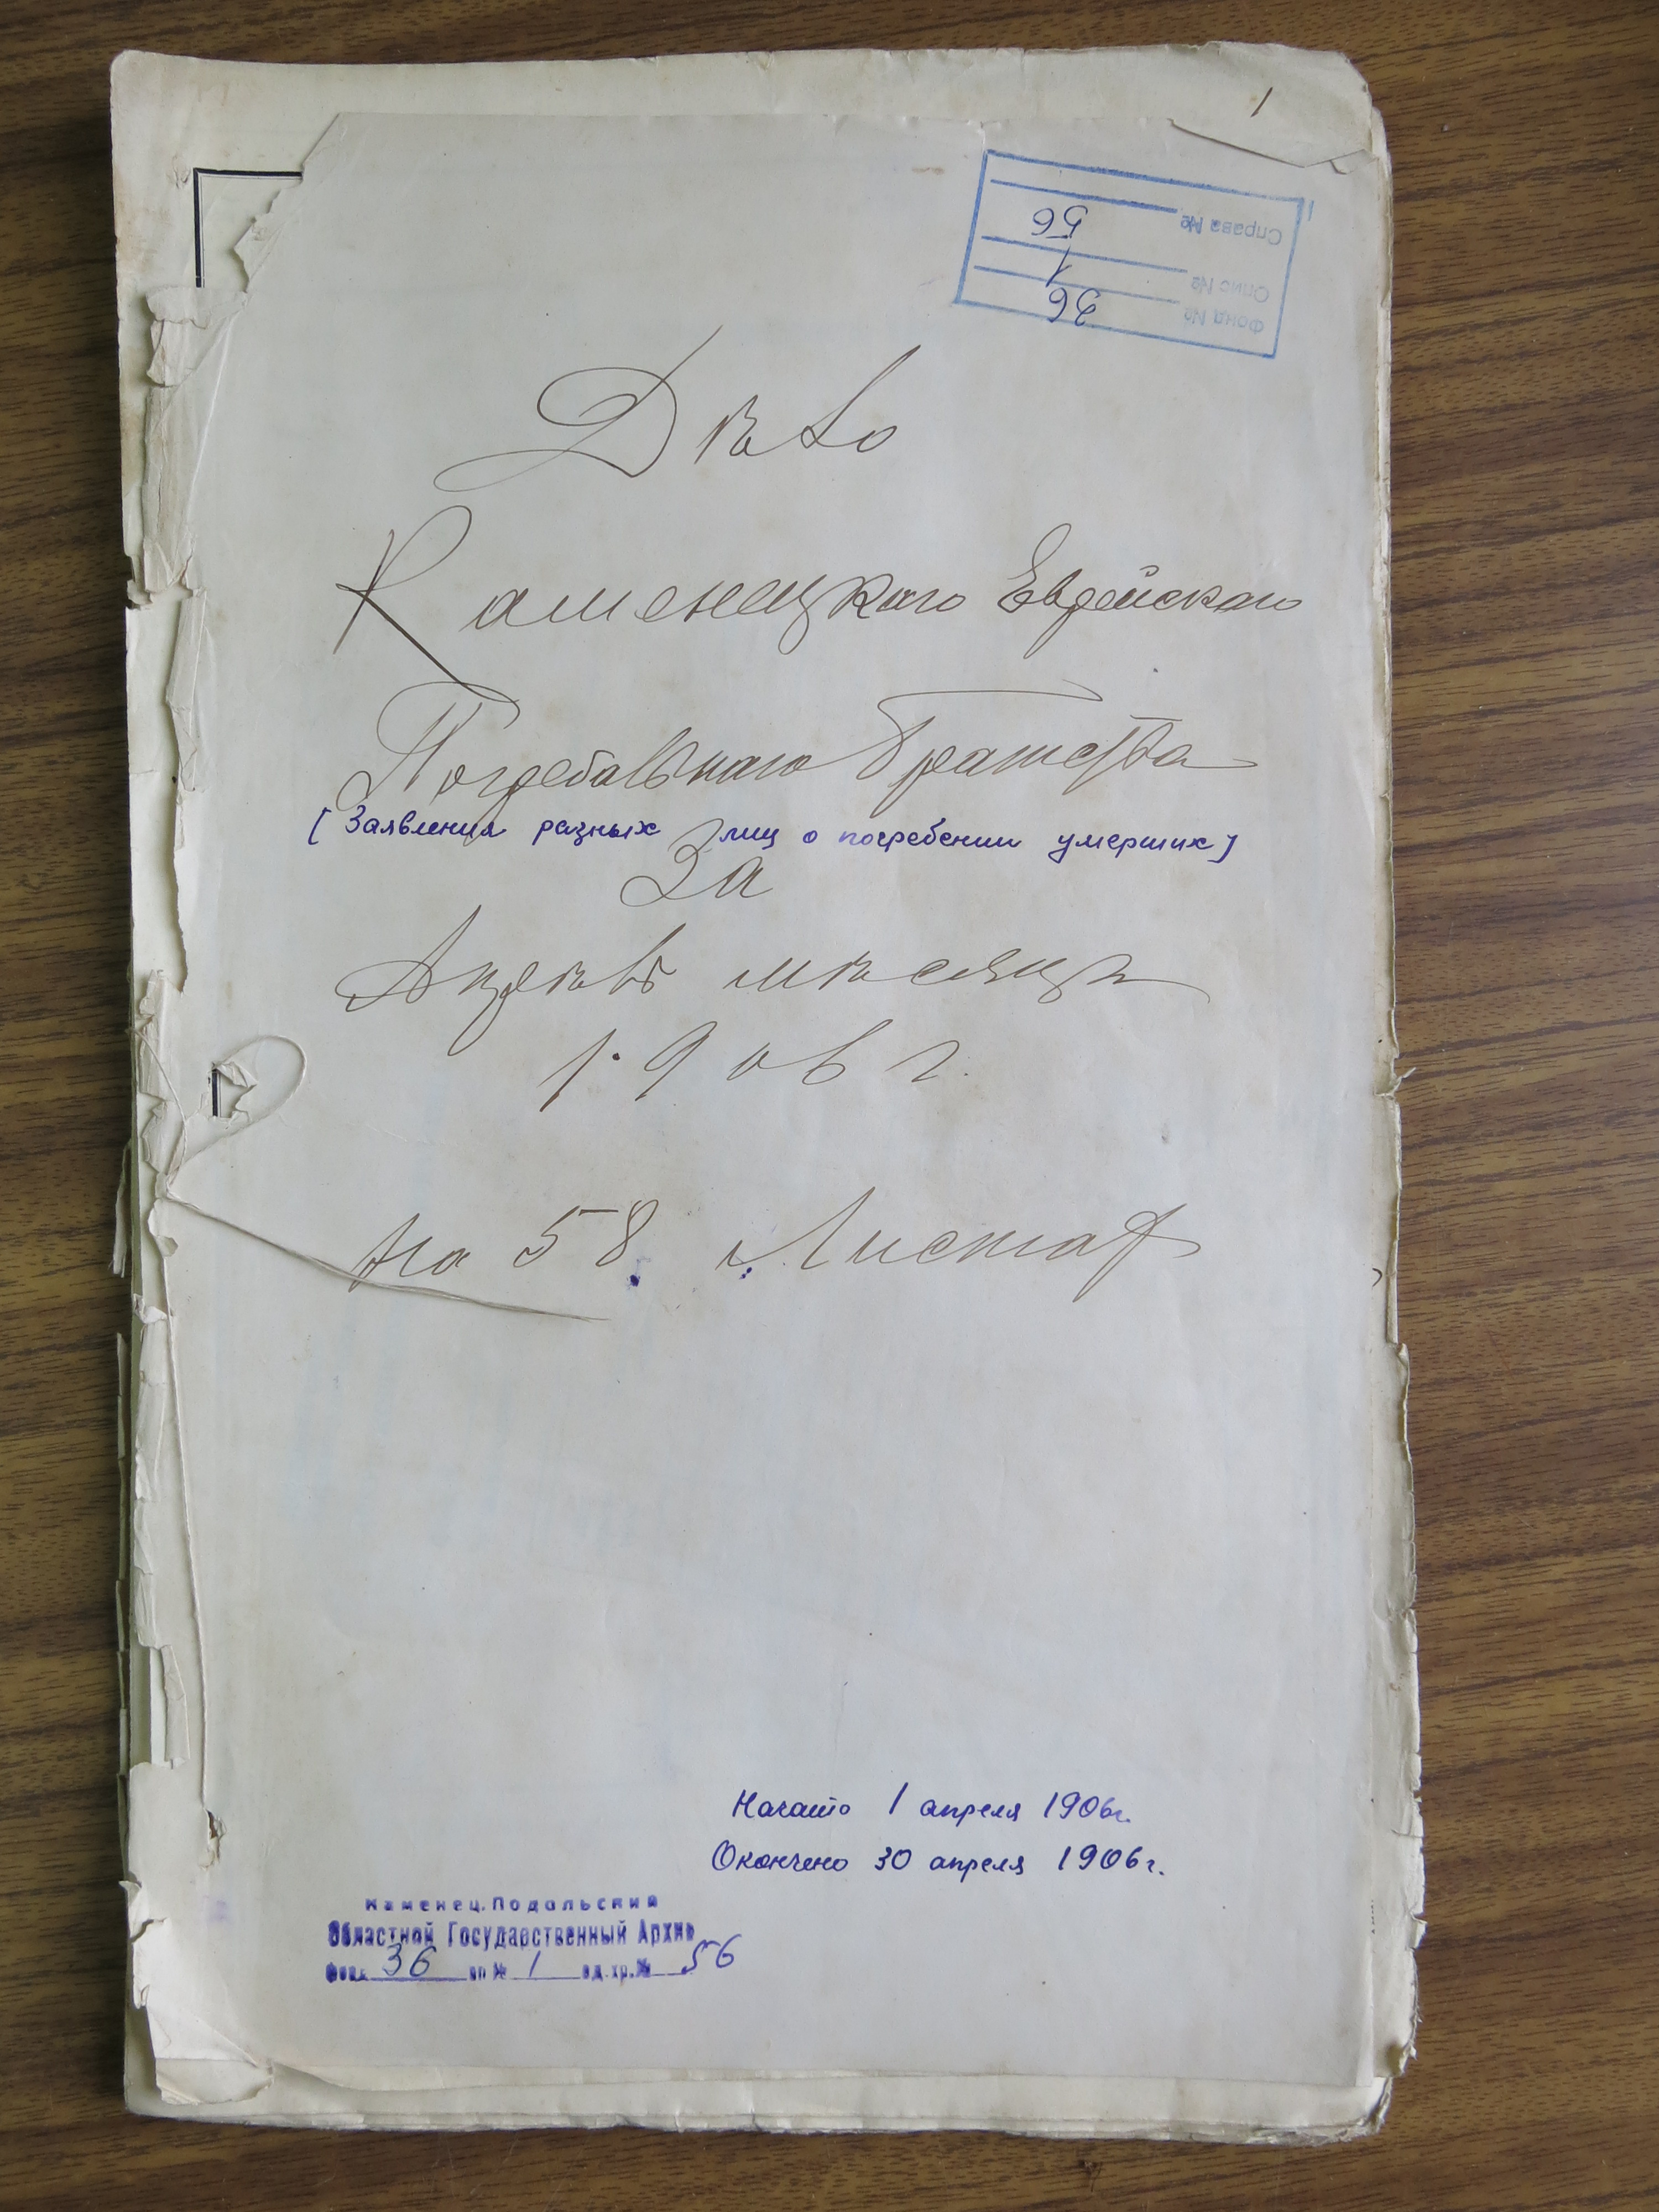 1
Справа № 56
Опис № 1
Фонд № 36
Дѣло
Каменецкаго Еврейскаго
Погребальнаго Братства
[Заявления разных лиц о погребении умерших]
За
Апрѣль мѣсяцъ
1906 г.
на 58 Листах
Начато 1 апреля 1906г.
Окончено 30 апреля 1906г.
Каменец.Подольский
Областной Государственный Архив
Фонд 36 оп № 1 ед.хр.№ 56